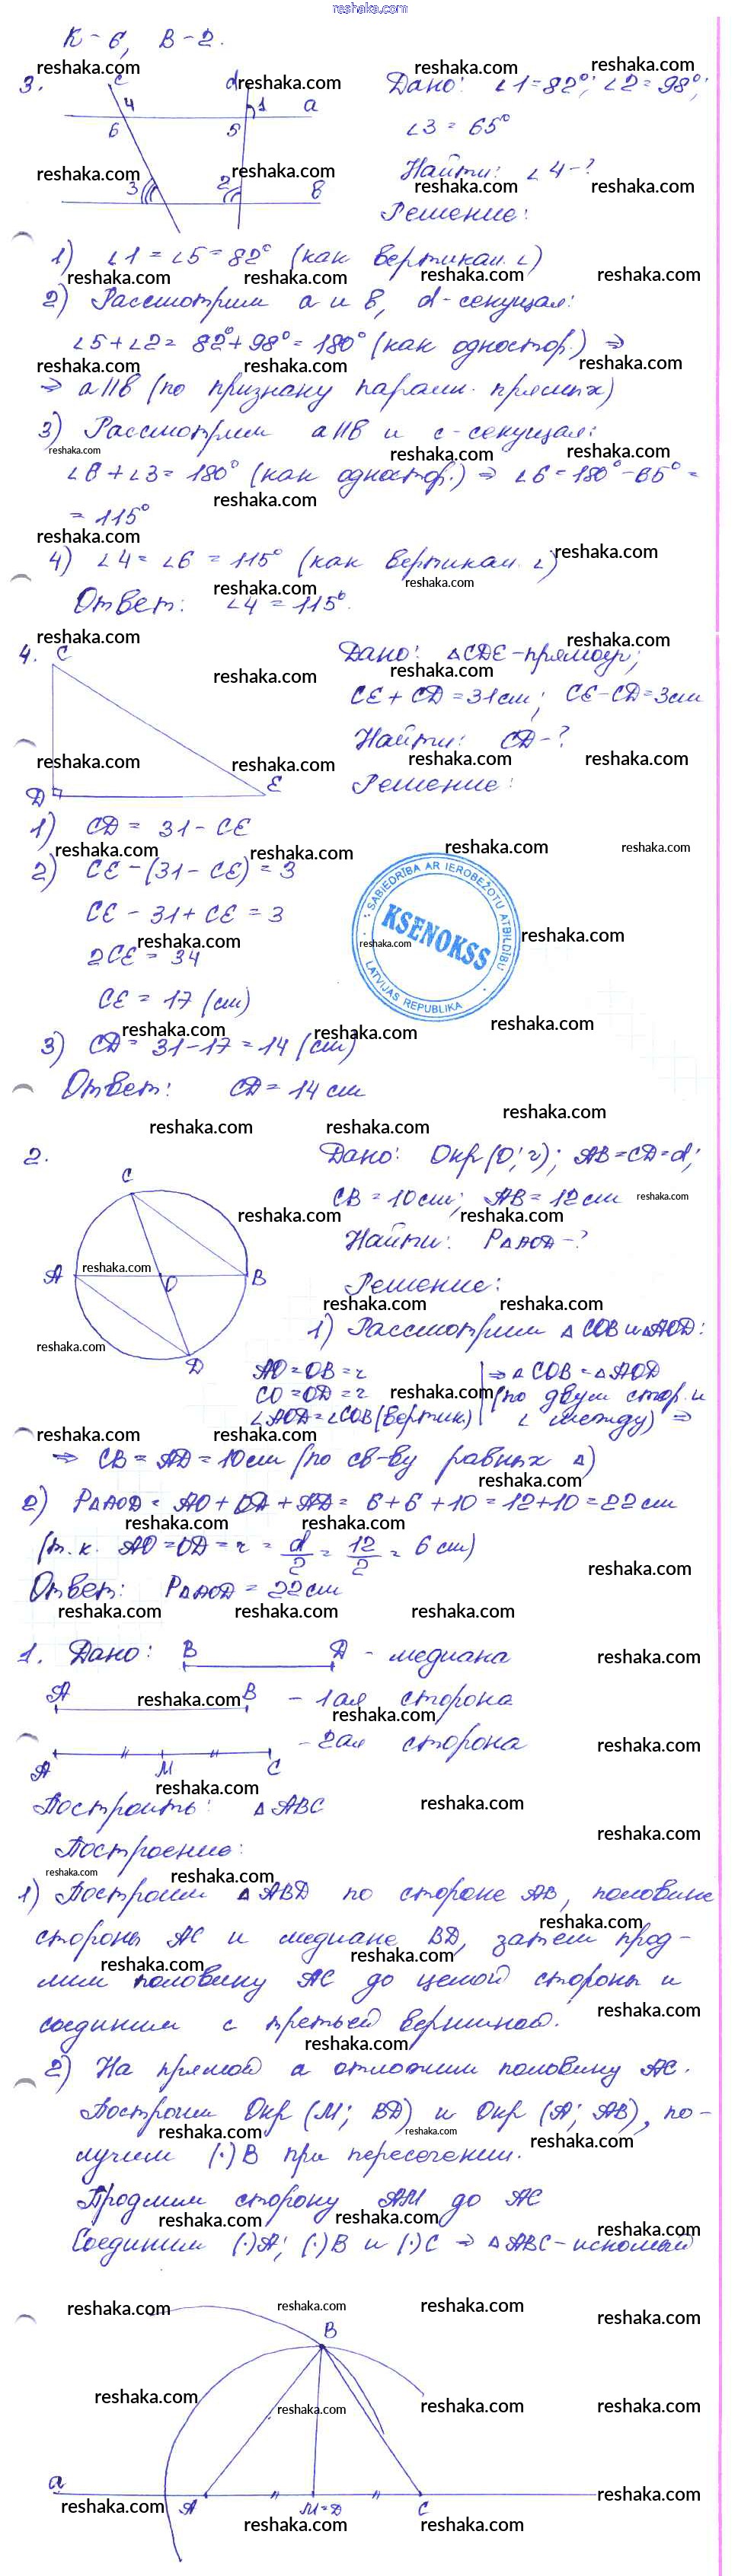 reshaka.com
К-6, В-2.
3. c d 1 a 4 6 5 3 2 в
Дано: ∠1=82°; ∠2=98°;
∠3=65°
Найти: ∠4-?
Решение:
1) ∠1=∠5=82° (как вертикал. ∠)
2) Рассмотрим a и в, d-секущая:
∠5+∠2=82°+98°=180° (как одностор.) ⇒
⇒ a||в (по признаку паралл. прямых)
3) Рассмотрим a||в и c-секущая:
∠6+∠3=180° (как одностор.) ⇒ ∠6=180°-65°=
=115°
4) ∠4=∠6=115° (как вертикал. ∠)
Ответ: ∠4=115°.
4. C D E
Дано: △CDE-прямоуг;
CE+CD=31см; CE-CD=3см
Найти: CD-?
Решение:
1) CD=31-CE
2) CE-(31-CE)=3
CE-31+CE=3
2CE=34
CE=17 (см)
3) CD=31-17=14 (см)
Ответ: CD=14см
SABIEDRĪBA AR IEROBEŽOTU ATBILDĪBU
KSENOKSS
LATVIJAS REPUBLIKA
2. C A O B D
Дано: Окр(O;r); AB=CD=d;
CB=10см; AB=12см
Найти: P△AOD-?
Решение:
1) Рассмотрим △COB и △AOD:
AO=OB=r ⇒ △COB=△AOD
CO=OD=r (по двум стор. и
∠AOD=∠COB (вертик.) ∠ между) ⇒
⇒ CB=AD=10см (по св-ву равных △)
2) P△AOD=AO+OD+AD=6+6+10=12+10=22см
(т.к. AO=OD=r=d/2=12/2=6см)
Ответ: P△AOD=22см
1. Дано: B D - медиана
A B - 1ая сторона
A M C - 2ая сторона
Построить: △ABC
Построение:
1) Построим △ABD по стороне AB, половине
стороны AC и медиане BD, затем прод-
лим половину AC до целой стороны и
соединим с третьей вершиной.
2) На прямой a отложим половину AC.
Построим Окр(M; BD) и Окр(A; AB), по-
лучим (·)B при пересечении.
Продлим сторону AM до AC
Соединим (·)A; (·)B и (·)C ⇒ △ABC-искомый
B
a A M=D C